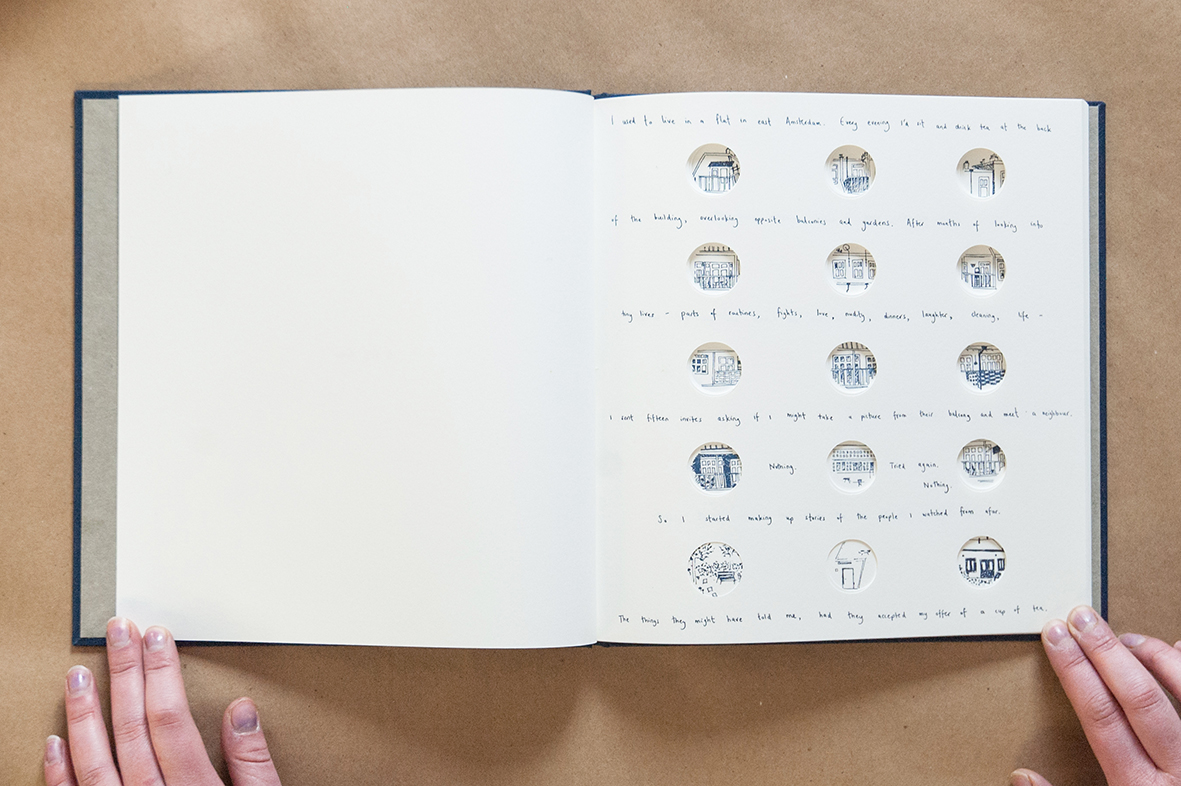 I used to live in a flat in east Amsterdam. Every evening I'd sit and drink tea at the back
of the building, overlooking opposite balconies and gardens. After months of looking into
tiny lives - parts of routines, fights, love, nudity, dinners, laughter, cleaning, life -
I sent fifteen invites asking if I might take a picture from their balcony and meet a neighbour.
Nothing. Tried again.
Nothing.
So I started making up stories of the people I watched from afar.
The things they might have told me, had they accepted my offer of a cup of tea.